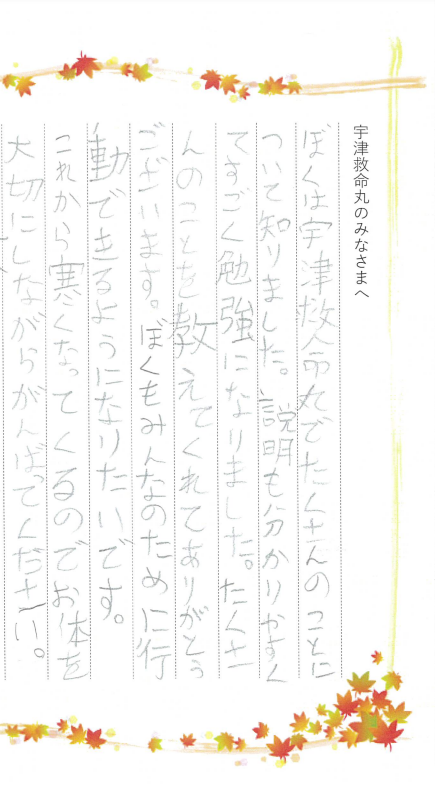 宇津救命丸のみなさまへ
ぼくは宇津救命丸でたくさんのことに
ついて知りました。説明も分かりやすく
てすごく勉強になりました。たくさ
んのことを教えてくれてありがとう
ございます。ぼくもみんなのために行
動できるようになりたいです。
これから寒くなってくるのでお体を
大切にしながらがんばってください。